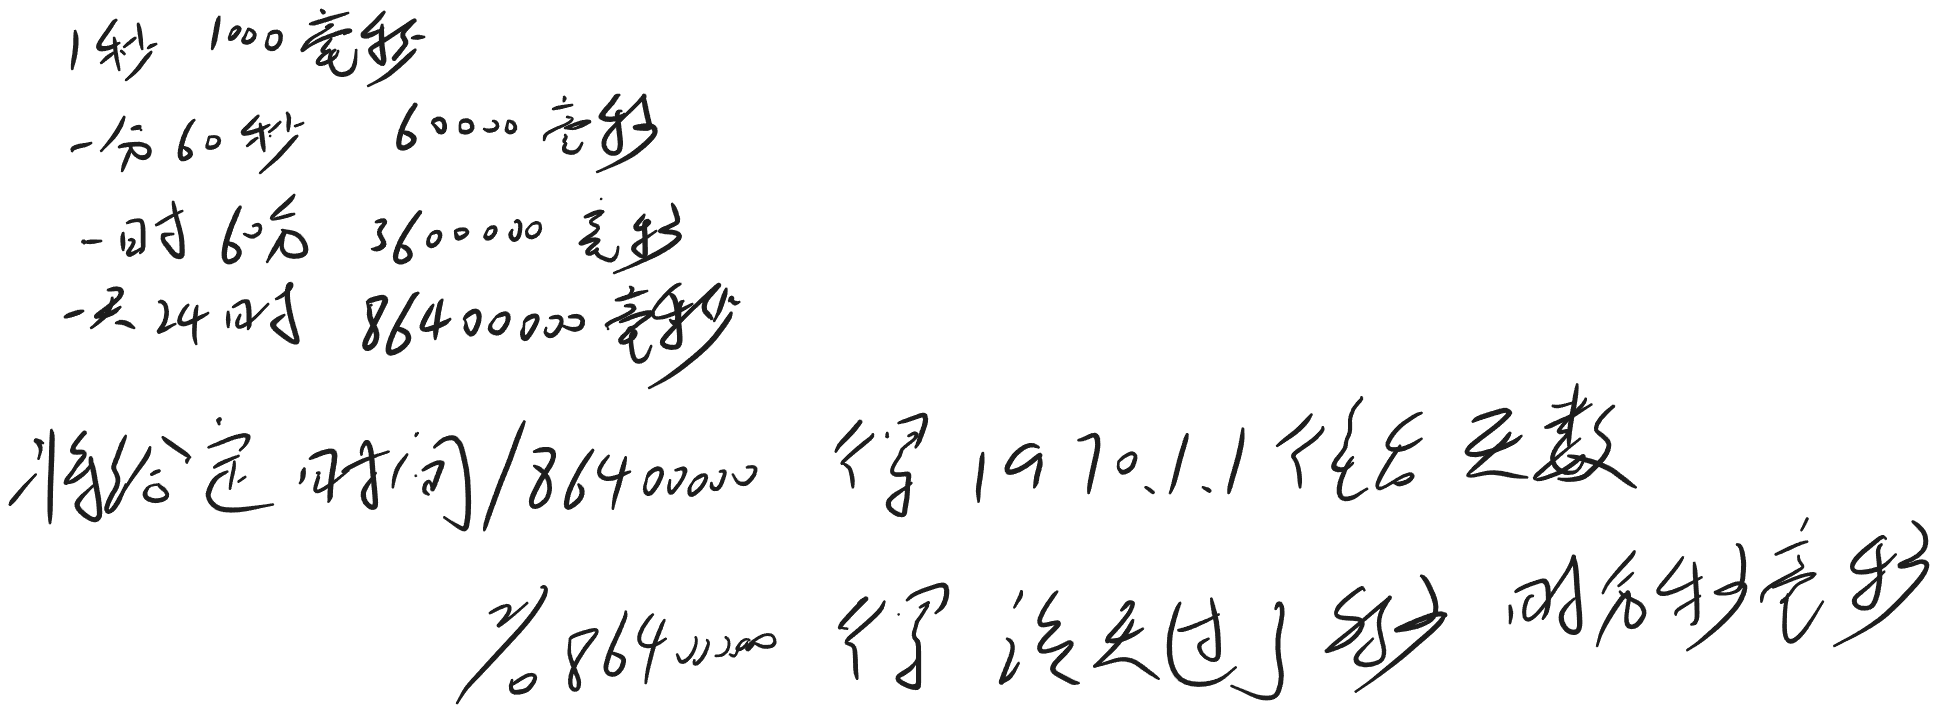 1秒 1000毫秒
一分60秒 60000毫秒
一时60分 3600000毫秒
一天24时 86400000毫秒
将给定时间/86400000 得1970.1.1往后天数
%86400000 得 该天过了秒 时分秒毫秒